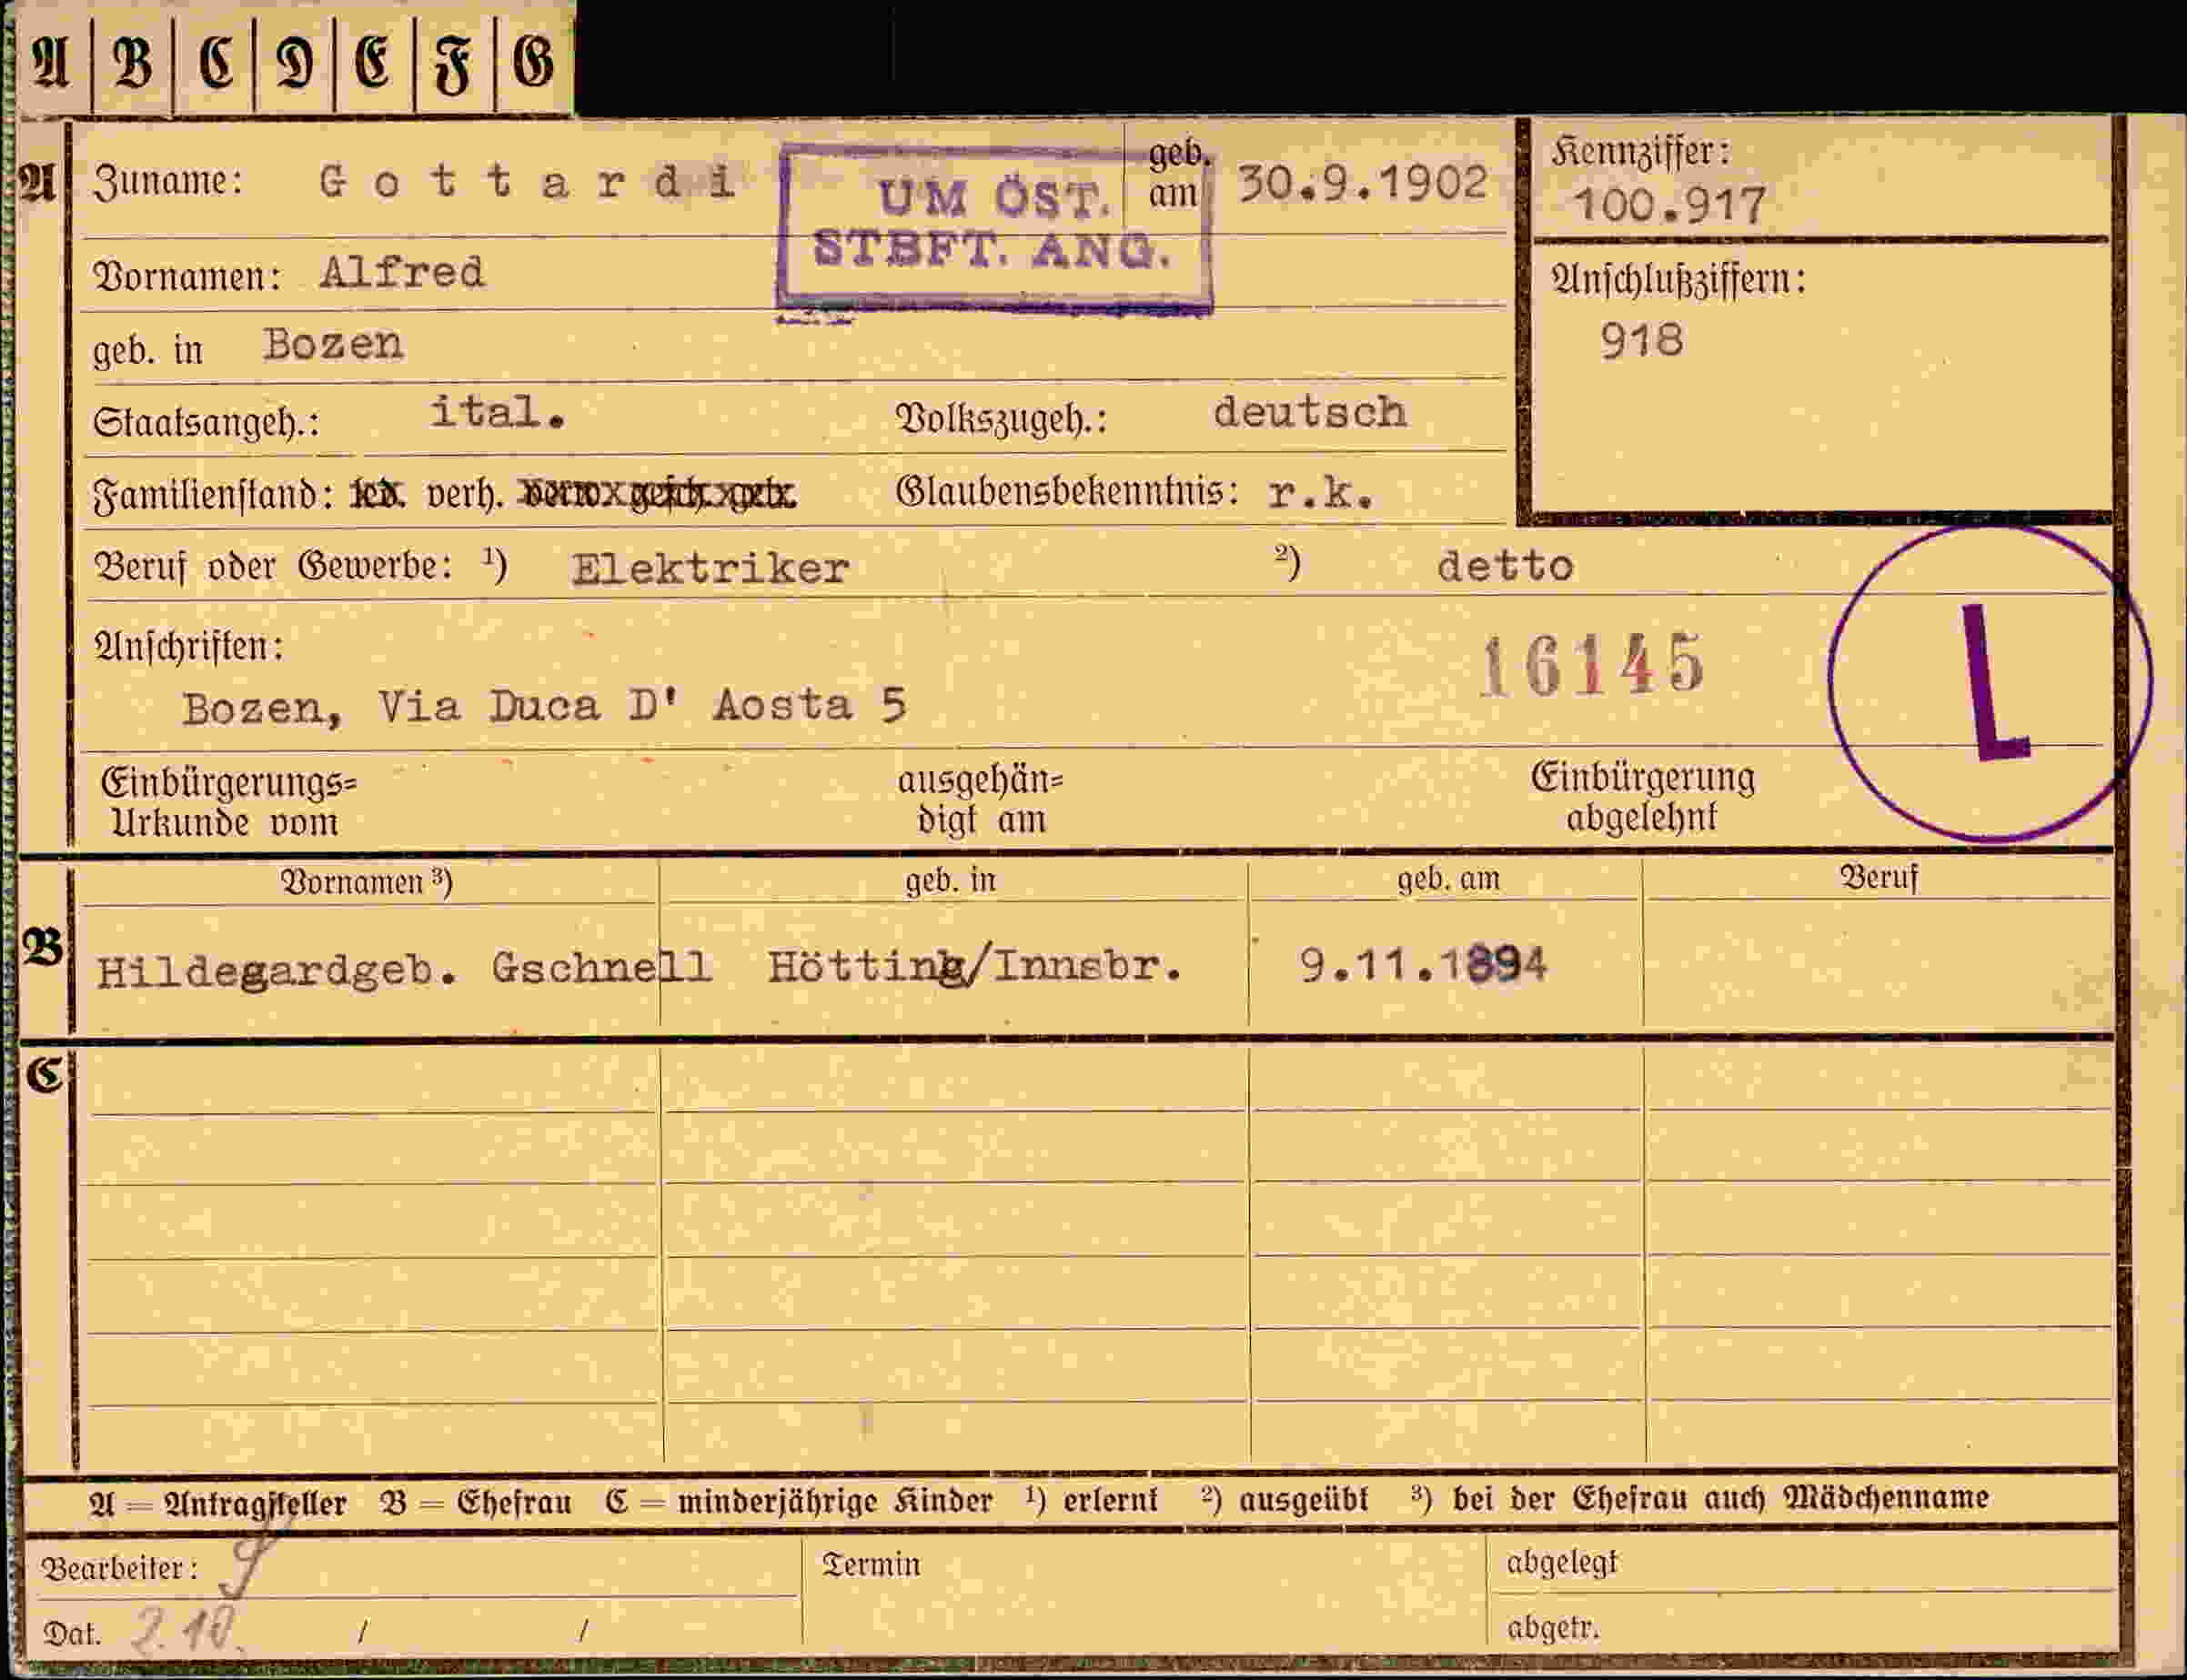 A B C D E F G
A Zuname: Gottardi geb. am 30.9.1902
UM ÖST.
STBFT. ANG.
Kennziffer:
100.917
Vornamen: Alfred
Anschlußziffern:
918
geb. in Bozen
Staatsangeh.: ital. Volkszugeh.: deutsch
Familienstand: led. verh. Glaubensbekenntnis: r.k.
Beruf oder Gewerbe: ¹) Elektriker ²) detto
Anschriften:
16145
L
Bozen, Via Duca D' Aosta 5
Einbürgerungs=
Urkunde vom
ausgehän=
digt am
Einbürgerung
abgelehnt
Vornamen ³) geb. in geb. am Beruf
B Hildegardgeb. Gschnell Hötting/Innsbr. 9.11.1894
C
A = Antragsteller B = Ehefrau C = minderjährige Kinder ¹) erlernt ²) ausgeübt ³) bei der Ehefrau auch Mädchenname
Bearbeiter: Termin abgelegt
Dat. 2.10. / / abgetr.